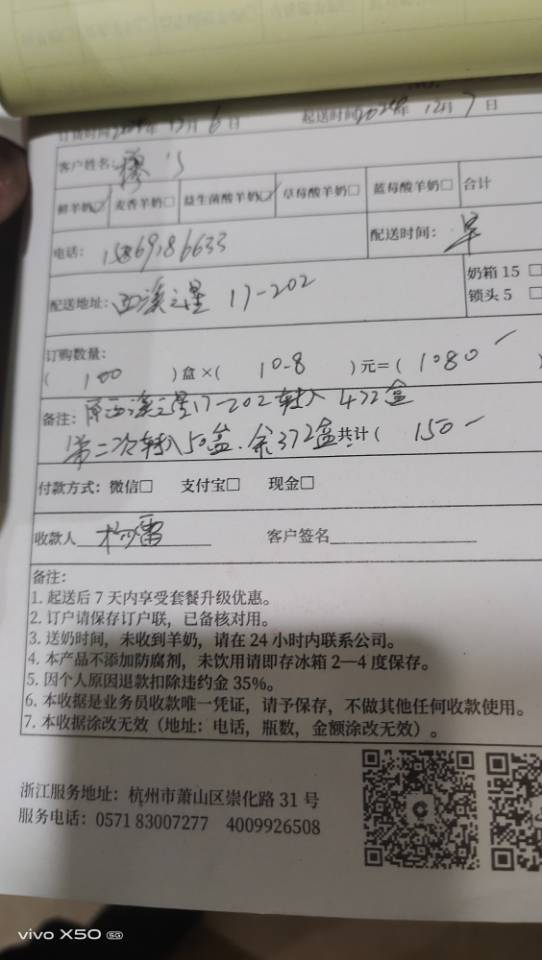 订货时间2024年12月6日 起送时间2024年12月7日
客户姓名:
鲜羊奶☑ 麦香羊奶□ 益生菌酸羊奶☑ 草莓酸羊奶□ 蓝莓酸羊奶□ 合计
电话: 15869186633 配送时间: 早
配送地址: 西溪之星 17-202 奶箱 15 □
锁头 5 □
订购数量:
( 100 )盒×( 10.8 )元=( 1080 )
备注: 西溪之星17-202转入 422盒
第二次转入50盒.余372盒共计( 150
付款方式: 微信□ 支付宝□ 现金□
收款人 杨雷 客户签名
备注:
1. 起送后 7 天内享受套餐升级优惠。
2. 订户请保存订户联，已备核对用。
3. 送奶时间，未收到羊奶，请在 24 小时内联系公司。
4. 本产品不添加防腐剂，未饮用请即存冰箱 2—4 度保存。
5. 因个人原因退款扣除违约金 35%。
6. 本收据是业务员收款唯一凭证，请予保存，不做其他任何收款使用。
7. 本收据涂改无效（地址: 电话，瓶数，金额涂改无效）。
浙江服务地址: 杭州市萧山区崇化路 31 号
服务电话: 0571 83007277 4009926508
vivo X50 5G